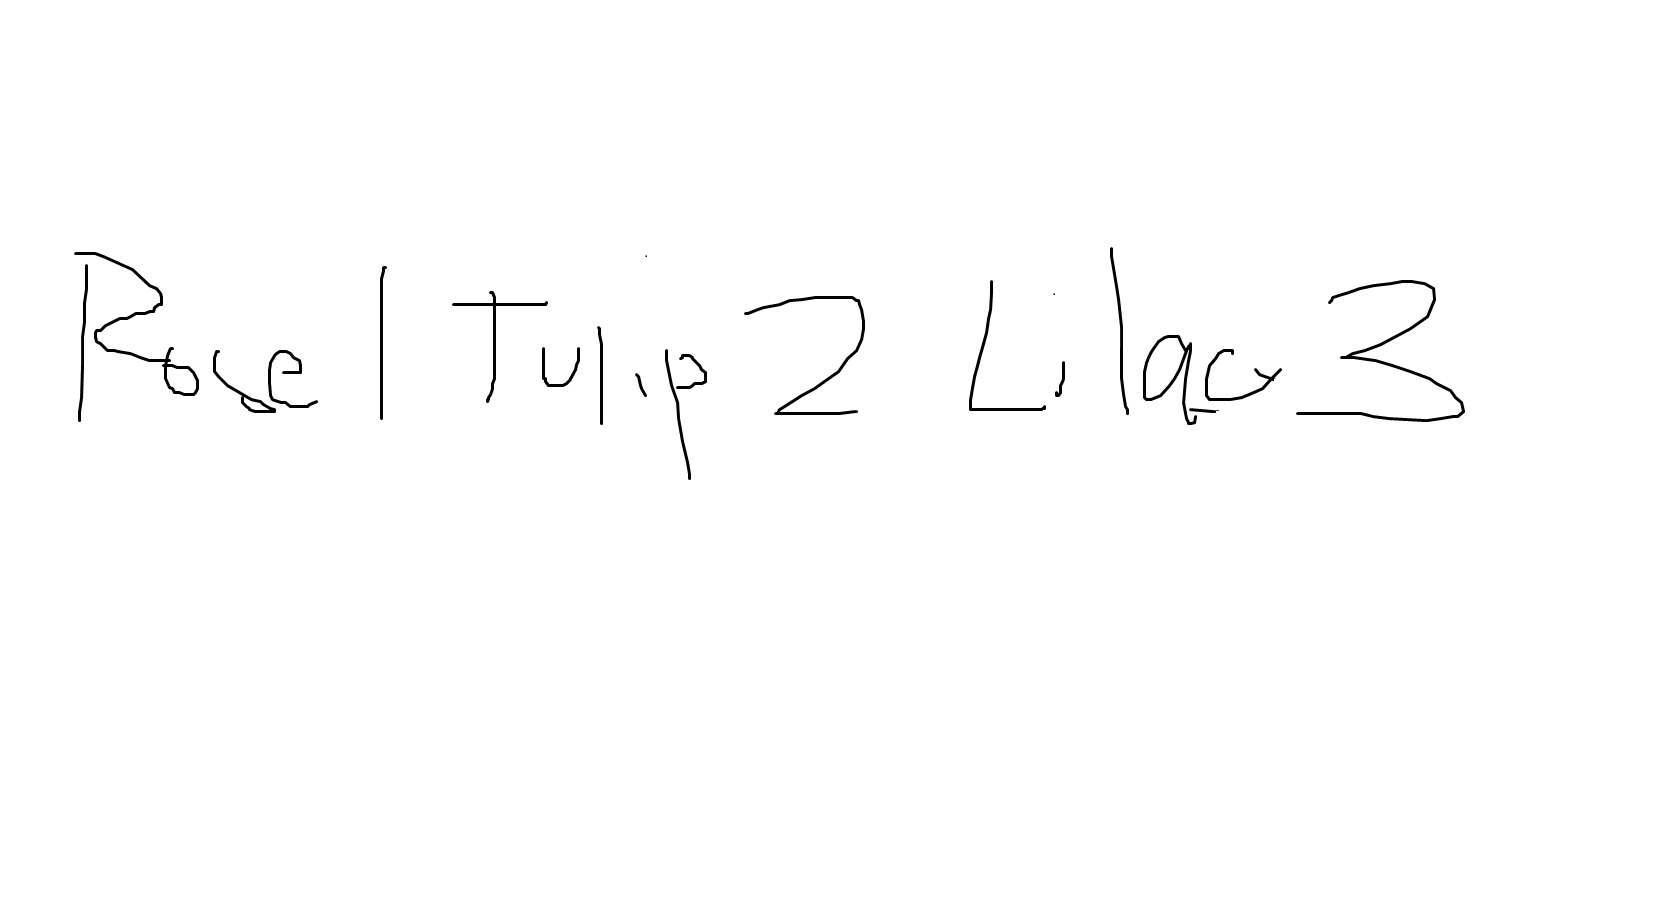 Rose 1 Tulip 2 Lilac 3